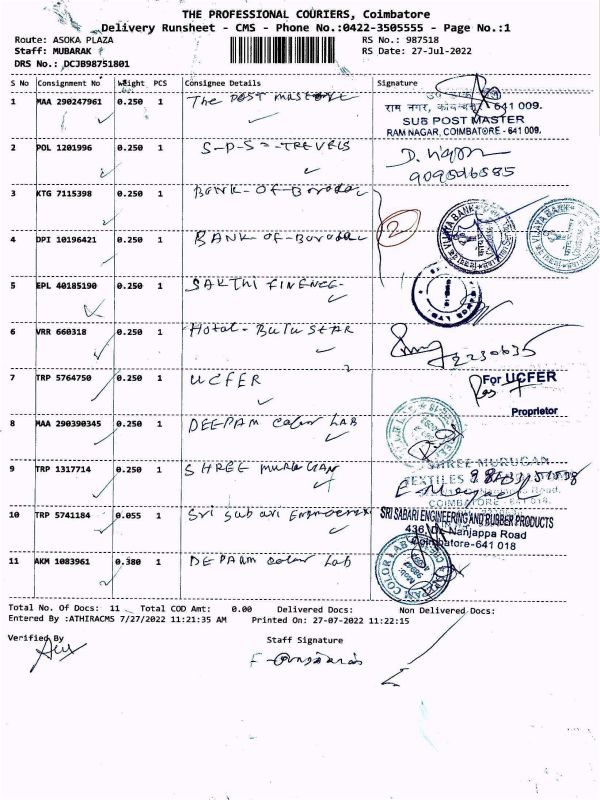 THE PROFESSIONAL COURIERS, Coimbatore
Delivery Runsheet - CMS - Phone No.:0422-3505555 - Page No.:1
Route: ASOKA PLAZA RS No.: 987518
Staff: MUBARAK RS Date: 27-Jul-2022
DRS No.: DCJB98751801
S No Consignment No Weight PCS Consignee Details Signature
1 MAA 290247961 0.250 1 The POST MASTORE
राम नगर, 641 009.
SUB POST MASTER
RAM NAGAR, COIMBATORE - 641 009.
2 POL 1201996 0.250 1 S-P-S - TREVELS
3 KTG 7115398 0.250 1 BANK-OF-Borodar
2
VIJAYA BANK
VIJAYA BANK
4 DPI 10196421 0.250 1 BANK-OF-Borodar
5 EPL 40185190 0.250 1 SAKTHI FINENCE-
6 VRR 660318 0.250 1 Hotal-BLUSTAR
2230635
7 TRP 5764750 0.250 1 UCFER
For UCFER
Proprietor
8 MAA 290390345 0.250 1 DEEPAM Color LAB
9 TRP 1317714 0.250 1 SHREE MURUGAN
SHREE MURUGAN
TEXTILES
10 TRP 5741184 0.055 1 Sri Sabari Engineerex
SRI SABARI ENGINEERING AND RUBBER PRODUCTS
436, Nanjappa Road
Coimbatore-641 018
11 AKM 1083961 0.380 1 DEPARM Color Lab
COLOR LAB
Total No. Of Docs: 11 Total COD Amt: 0.00 Delivered Docs: Non Delivered Docs:
Entered By :ATHIRACMS 7/27/2022 11:21:35 AM Printed On: 27-07-2022 11:22:15
Verified By Staff Signature